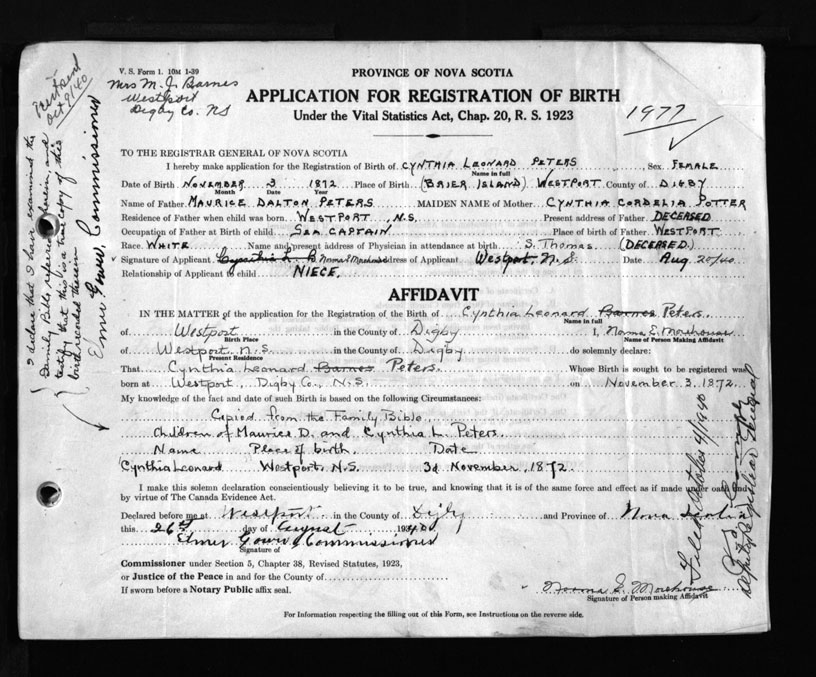 V. S. Form 1. 10M 1-39
Mrs M. J. Barnes
Westport
Digby Co. NS
Oct 9/40
PROVINCE OF NOVA SCOTIA
APPLICATION FOR REGISTRATION OF BIRTH
Under the Vital Statistics Act, Chap. 20, R. S. 1923
1977
TO THE REGISTRAR GENERAL OF NOVA SCOTIA
I hereby make application for the Registration of Birth of CYNTHIA LEONARD PETERS, Sex FEMALE
Name in full
Date of Birth NOVEMBER 3 1872 Place of Birth (BRIER ISLAND) WESTPORT County of DIGBY
Month Date Year
Name of Father MAURICE DALTON PETERS MAIDEN NAME of Mother CYNTHIA CORDELIA POTTER
Residence of Father when child was born WESTPORT, N.S. Present address of Father DECEASED
Occupation of Father at Birth of child SEA CAPTAIN Place of birth of Father WESTPORT
Race WHITE Name and present address of Physician in attendance at birth S. THOMAS (DECEASED.)
Signature of Applicant Cynthia L. B Norma Morehouse Address of Applicant Westport, N.S Date Aug 20/40
Relationship of Applicant to child NIECE.
AFFIDAVIT
IN THE MATTER of the application for the Registration of Birth of Cynthia Leonard Barnes Peters
Name in full
of Westport in the County of Digby I, Norma E. Morehouse
Birth Place Name of Person Making Affidavit
of Westport N.S. in the County of Digby do solemnly declare:
Present Residence
That Cynthia Leonard Barnes Peters Whose Birth is sought to be registered was
born at Westport, Digby Co., N.S. on November 3, 1872.
My knowledge of the fact and date of such Birth is based on the following Circumstances:
Copied from the Family Bible
Children of Maurice D. and Cynthia L. Peters
Name Place of birth. Date
Cynthia Leonard Westport, N.S. 3d November, 1872.
I make this solemn declaration conscientiously believing it to be true, and knowing that it is of the same force and effect as if made under oath and
by virtue of The Canada Evidence Act.
Declared before me at Westport in the County of Digby and Province of Nova Scotia
this 26th day of August 1940
Elmer Gower Commissioner
Signature of
Commissioner under Section 5, Chapter 38, Revised Statutes, 1923,
or Justice of the Peace in and for the County of
If sworn before a Notary Public affix seal.
Norma E. Morehouse
Signature of Person making Affidavit
For Information respecting the filling out of this Form, see Instructions on the reverse side.
I declare that I have examined the
Family Bible referred to herein, and
testify that this is a true copy of the
birth recorded therein
Elmer Gower, Commissioner
Filed October 4/1940
Deputy Registrar General